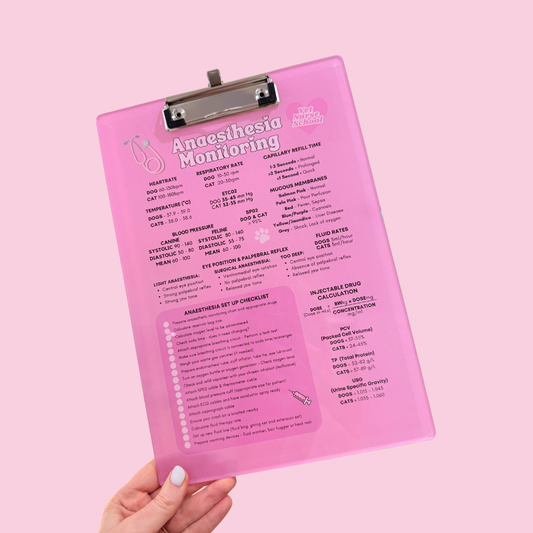 Anaesthesia
Monitoring
Vet
Nurse
School
HEARTRATE
DOG 60-150bpm
CAT 100-180bpm
RESPIRATORY RATE
DOG 10-30 rpm
CAT 20-30rpm
CAPILLARY REFILL TIME
1-2 Seconds - Normal
>2 Seconds - Prolonged
<1 Second - Quick
TEMPERATURE (°C)
DOGS - 37.9 - 39.0
CATS - 38.0 - 38.6
ETCO2
DOG 35-45 mm Hg
CAT 32-35 mm Hg
MUCOUS MEMBRANES
Salmon Pink - Normal
Pale Pink - Poor Perfusion
Red - Fever, Sepsis
Blue/Purple - Cyanosis
Yellow/Jaundice - Liver Disease
Grey - Shock, Lack of oxygen
BLOOD PRESSURE
CANINE
SYSTOLIC 90 - 140
DIASTOLIC 50 - 80
MEAN 60 - 100
FELINE
SYSTOLIC 80 - 140
DIASTOLIC 55 - 75
MEAN 60 - 100
SPO2
DOG & CAT
> 95%
FLUID RATES
DOGS 5ml/hour
CATS 3ml/hour
EYE POSITION & PALPEBRAL REFLEX
LIGHT ANAESTHESIA:
Central eye position
Strong palpebral reflex
Strong jaw tone
SURGICAL ANAESTHESIA:
Ventromedial eye rotation
No palpebral reflex
Relaxed jaw tone
TOO DEEP:
Central eye position
Absence of palpebral reflex
Relaxed jaw tone
ANAESTHESIA SET UP CHECKLIST
Prepare anaesthetic monitoring chart and appropriate drugs
Calculate reservoir bag size
Calculate oxygen level to be administered
Check soda lime - does it need changing?
Attach appropriate breathing circuit - Perform a leak test
Make sure breathing circuit is connected to soda lime/scavenger
Weigh your waste gas canister (if needed)
Prepare endotracheal tube, cuff inflator, tube tie, lube
Turn on oxygen bottle or oxygen generation - Check oxygen level
Check and refill vaporiser with your chosen inhalant (iso/sevo)
Attach SPO2 cable & thermometer cable
Attach blood pressure cuff (appropriate size for patient)
Attach ECG cables and have conductor spray ready
Attach capnograph cable
Ensure your crash kit is located nearby
Calculate fluid therapy rate
Set up your fluid line (fluid bag, giving set and extension set)
Prepare warming devices - fluid warmer, bair hugger or heat mat
INJECTABLE DRUG
CALCULATION
DOSE = BWkg x DOSEmg
(Dose in mls) CONCENTRATION
mg/ml
PCV
(Packed Cell Volume)
DOGS - 37-55%
CATS - 24-45%
TP (Total Protein)
DOGS - 52-82 g/L
CATS - 57-89 g/L
USG
(Urine Specific Gravity)
DOGS - 1.015 - 1.045
CATS - 1.035 - 1.060